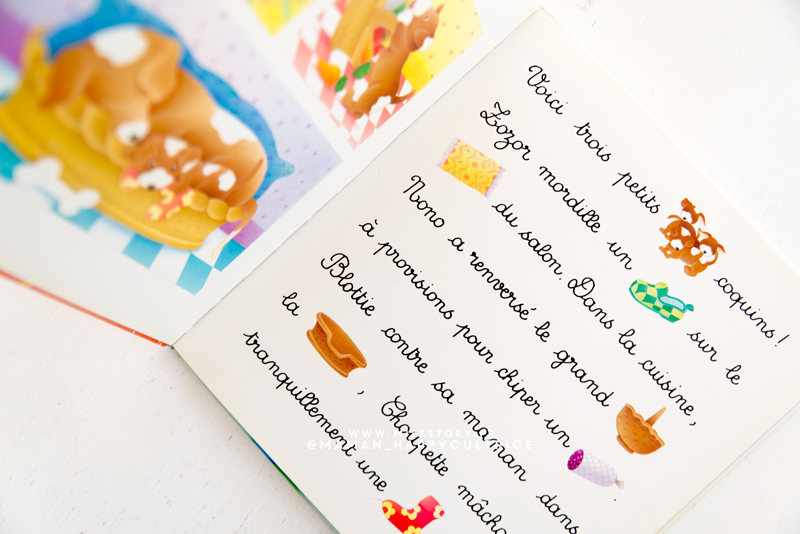 Voici trois petits coquins!
Zozor mordille un sur le
du salon. Dans la cuisine,
Nono a renversé le grand
à provisions pour chiper un .
Blottie contre sa maman dans
la , Choupette mâcho
tranquillement une
@MAMAN_HAPPYCULTRICE